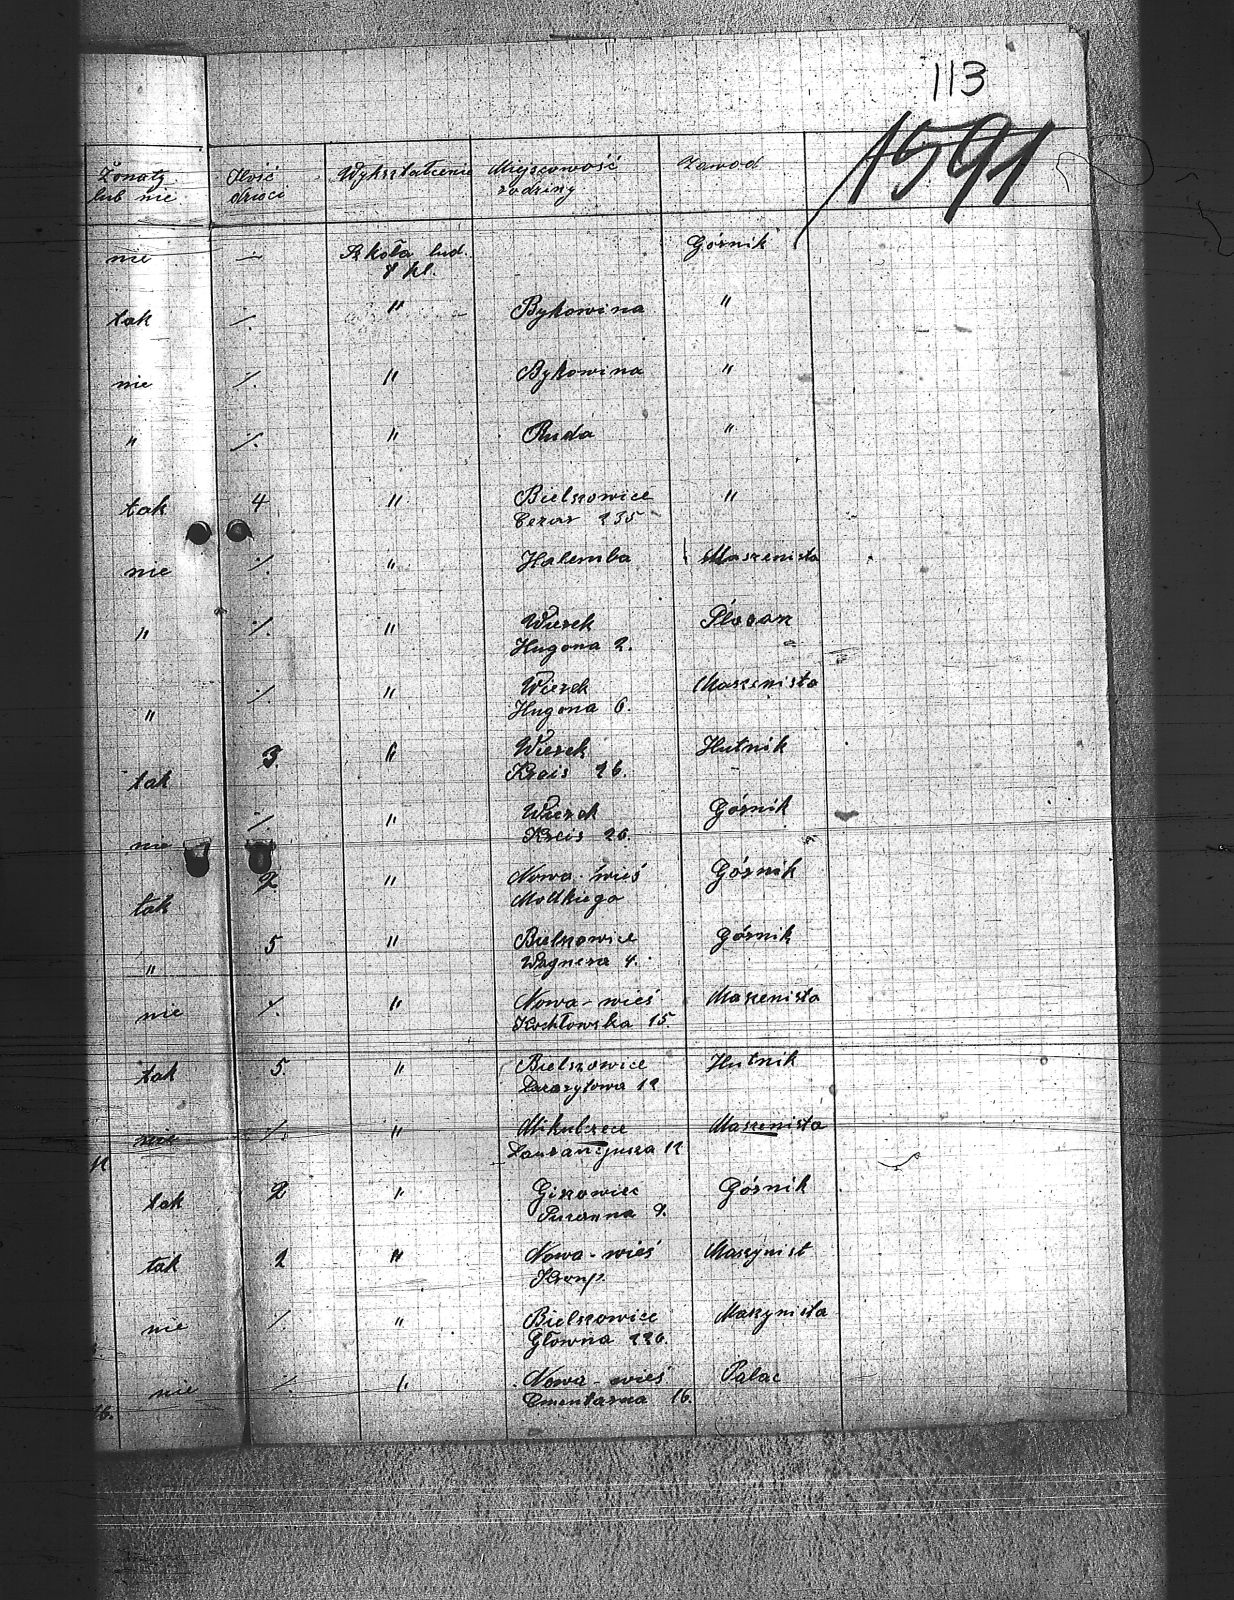 113
1591
Żonaty lub nie Ilość dzieci Wykształcenie Miejscowość rodziny Zawód
nie ·/· Szkoła lud. Górnik
8 kl.
tak ·/· " Bykowina "
nie ·/· " Bykowina "
" ·/· " Ruda "
tak 4 " Bielszowice "
Cezar 235
nie ·/· " Halemba Maszenista
" ·/· " Wirek
Hugona 2.
" ·/· " Wirek Maszenista
Hugona 6.
tak 3. " Wirek Hutnik
Krcis 26.
nie ·/· " Wirek Górnik
Krcis 26.
tak 2 " Nowa-wieś Górnik
Moltkiego
" 5 " Bielszowice Górnik
Wagnera 4.
nie ·/· " Nowa-wieś Maszenista
Kochłowska 15.
tak 5. " Bielszowice Hutnik
12
nie ·/· " Mikulczece Maszenista
12
tak 2 " Giszowiec Górnik
9.
tak 2 " Nowa-wieś Maszynist
Krup.
nie ·/· " Bielszowice Maszynista
Główna 226.
nie ·/· " Nowa-wieś Palac
Cmentarna 16.
16.